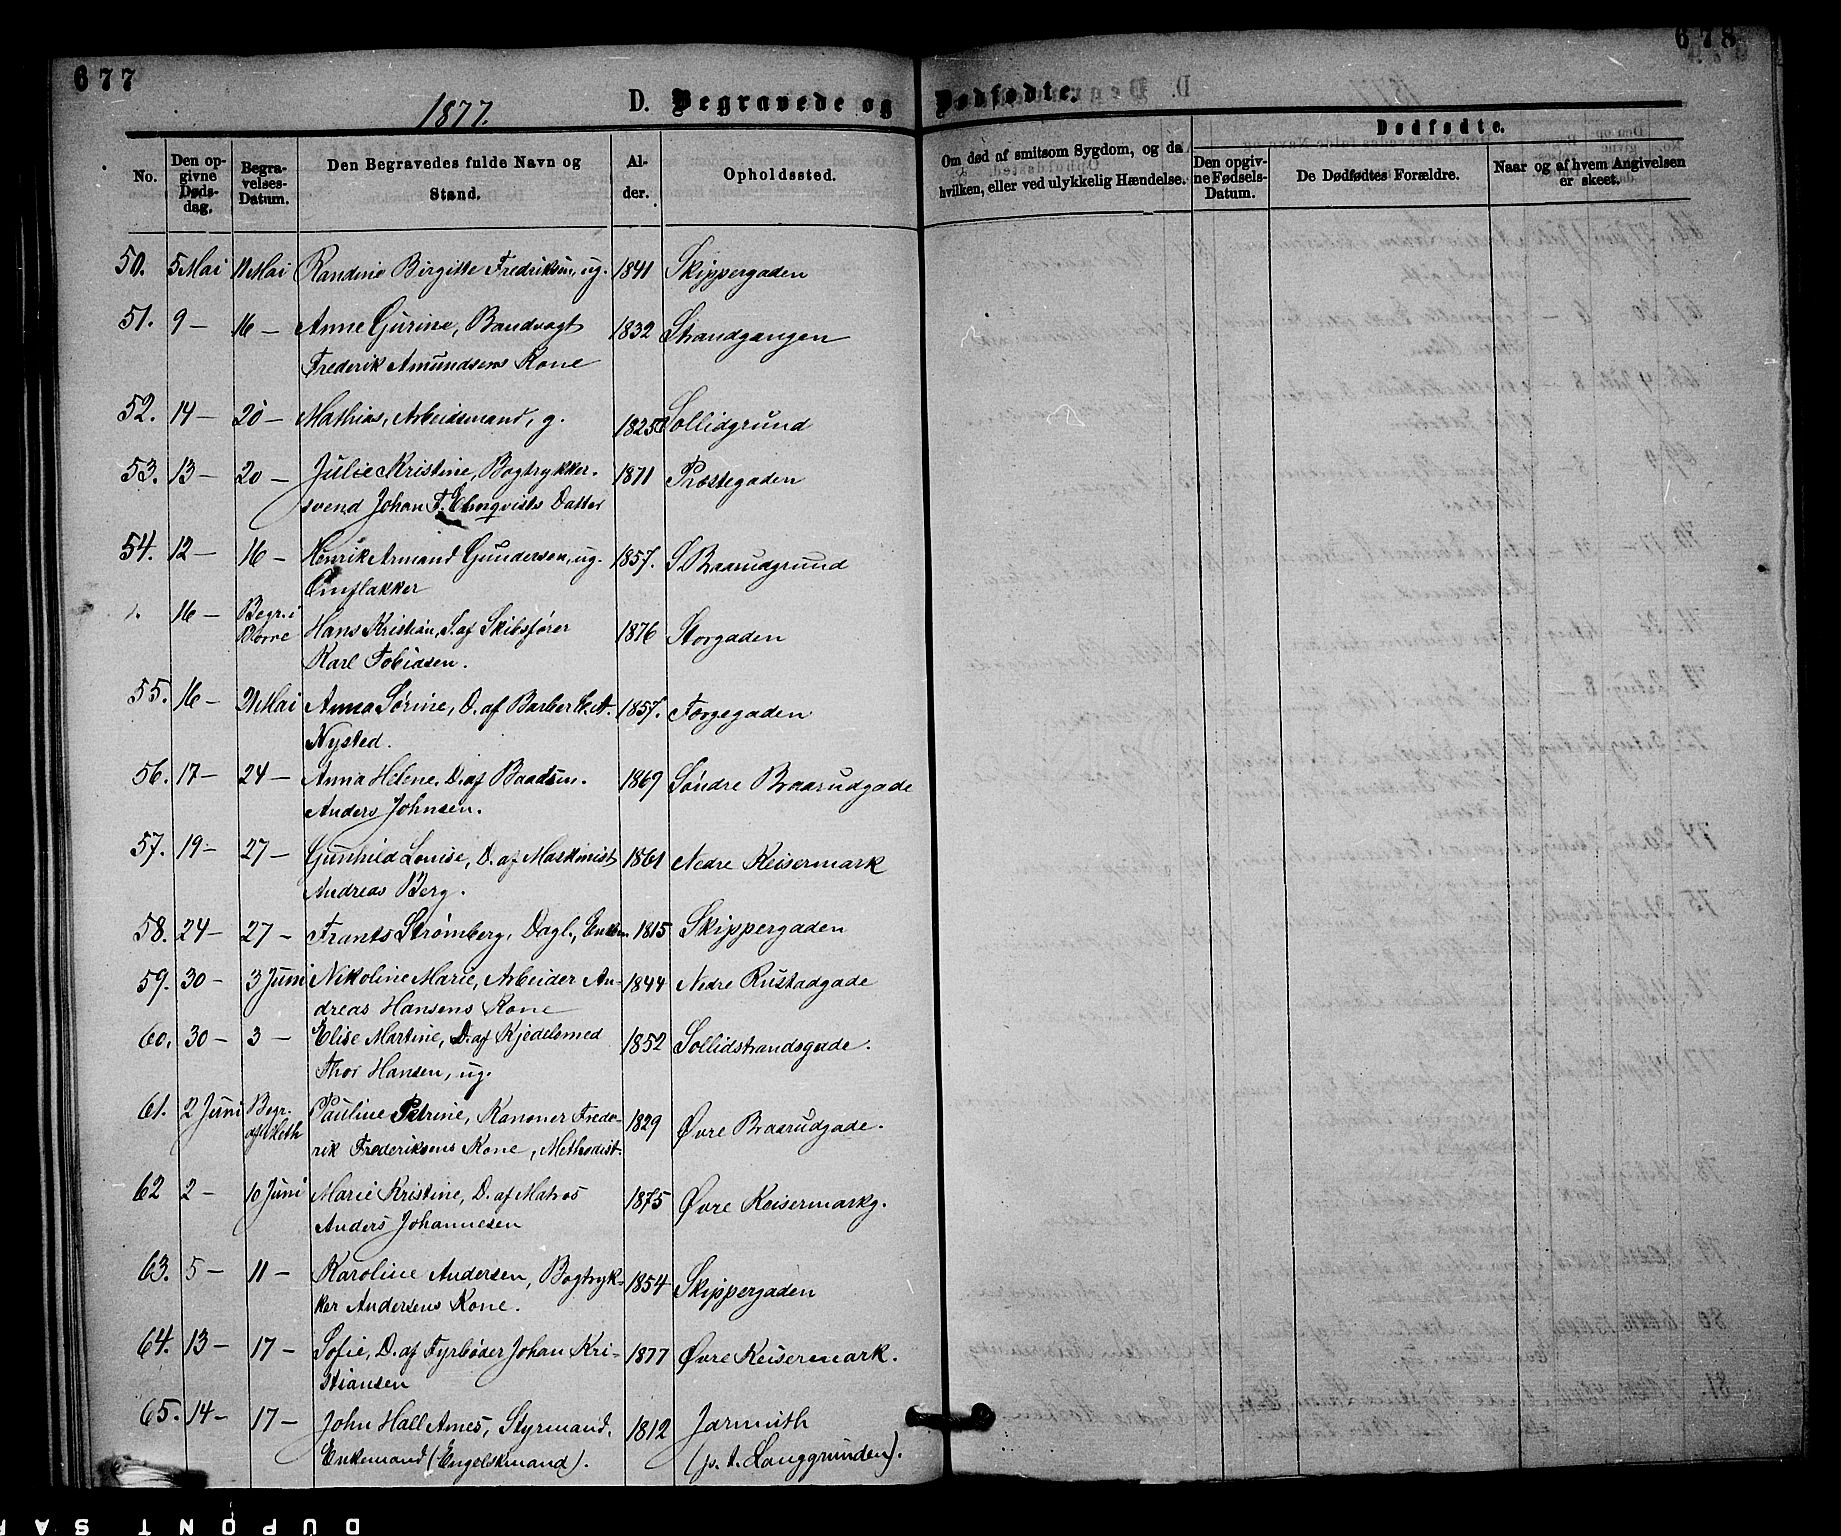 677
678
1877.
D. Begravede og Dødfødte.
No.
Den opgivne Dødsdag.
Begravelses-Datum.
Den Begravedes fulde Navn og Stand.
Alder.
Opholdssted.
Om død af smitsom Sygdom, og da hvilken, eller ved ulykkelig Hændelse.
Dødfødte.
Den opgivne Fødsels-Datum.
De Dødfødtes Forældre.
Naar og af hvem Angivelsen er skeet.
50. 5 Mai 11 Mai Randine Birgitte Fredriksen, ug. 1841 Skippergaden
51. 9 — 16 — Anne Gurine, Bandvagt 1832 Strandgangen
Frederik Amundsens Kone
52. 14 — 20 — Mathias, Arbeidsmand, g. 1825 Sollidgrund
53. 13 — 20 — Julie Kristine, Bogtrykker- 1871 Præstegaden
svend Johan F. Elmqvists Datter
54. 12 — 16 — Henrik Armand Gundersen, ug. 1857. S Braarudgrund
Omflakker
16 — Begr. i Borre Hans Kristian, S. af Skibsfører 1876 Storgaden
Karl Tobiasen.
55. 16 — 21 Mai Anna Sørine, D. af Barber C. A. 1857. Torgegaden
Nysted.
56. 17 — 24 — Anna Helene, D. af Baadsm. 1869 Søndre Braarudgade
Anders Johnsen.
57. 19 — 27 — Gunhild Louise, D. af Maskinist 1861 Nedre Keisermark
Andreas Berg.
58. 24 — 27 — Frants Strømberg, Dagl., Enkem. 1815 Skippergaden
59. 30 — 3 Juni Nikoline Marie, Arbeider An- 1844 Nedre Rustadgade
dreas Hansens Kone
60. 30 — 3 — Elise Martine, D. af Kjedelsmed 1852 Sollidstrandsgade.
Thor Hansen, ug.
61. 2 Juni Begr. af Meth Pauline Petrine, Kanoner Frede- 1829 Øvre Braarudgade.
rik Frederiksens Kone, Methodist.
62 2 — 10 Juni Marie Kristine, D. af Matros 1875 Øvre Keisermarkg.
Anders Johannesen
63. 5 — 11 — Karoline Andersen, Bogtryk- 1854 Skippergaden
ker Andersens Kone.
64. 13 — 17 — Sofie, D. af Fyrbøder Johan Kri- 1877 Øvre Keisermark.
stiansen
65. 14 — 17 — John Hall Ames, Styrmand, 1812 Jarmuth
Enkemand (Engelskmand). (p. t. Langgrunden).
DUPONT SA